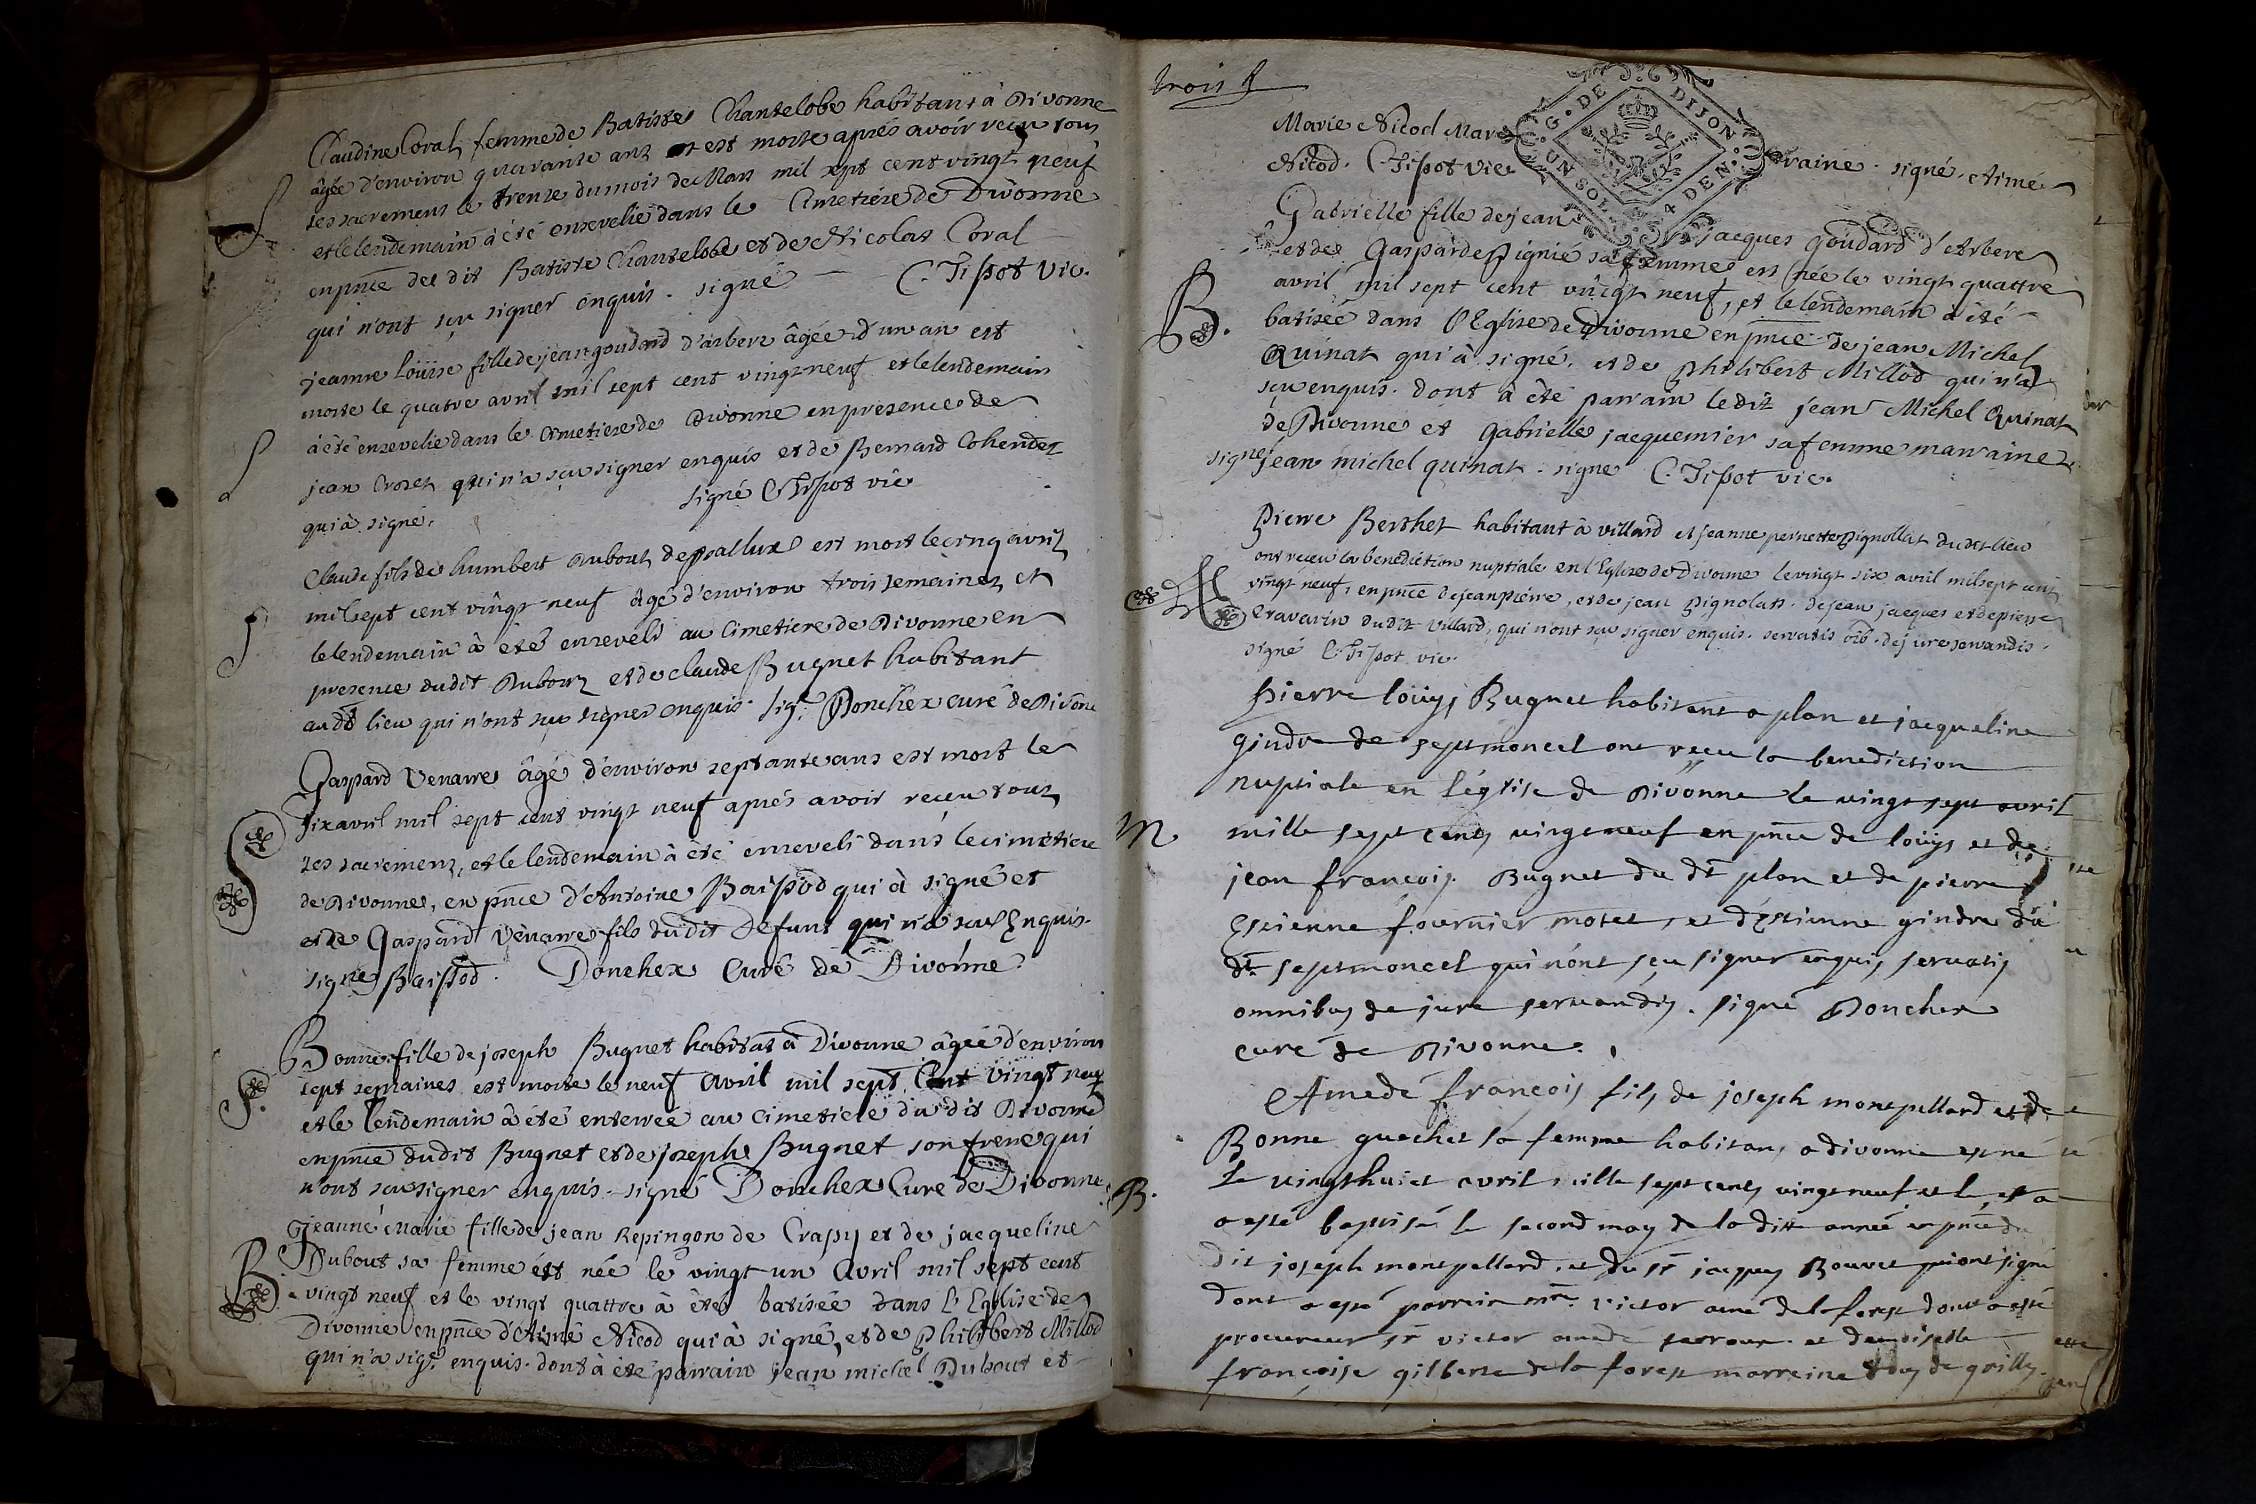 Claudine Coral femme de Batiste Chantelobe habitant à Divonne
âgée d'environ quarante ans est morte aprés avoir reçu tous
ses sacremens le trente du mois de Mars mil sept cent vingt neuf
et le lendemain à été ensevelie dans le Cimetiére de Divonne
en pnce du dit Batiste Chantelobe et de Nicolas Coral
qui n'ont sçu signer enquis. signé C. Tissot vic.
jeanne Loüise fille de jean goudard d'arbere âgée d'un an est
morte le quatre avril mil sept cent vingt neuf et le lendemain
à été ensevelie dans le Cimetiere de Divonne en presence de
jean Crozet qui n'a sçu signer enquis et de Bernard Cohendet
qui à signé. signé C. Tissot vic
Claude fils de humbert Dubout de est mort le cinq avril
mil sept cent vingt neuf âgé d'environ trois semaines et
le lendemain à été enseveli au Cimetiere de Divonne en
presence dudit Dubout et de claude Bugnet habitant
audt lieu qui n'ont sçu signer enquis. sig: Donchex curé de Divone
Gaspard Venarre âgé d'environ septante ans est mort le
six avril mil sept cent vingt neuf aprés avoir receu tous
ses sacremens, et le lendemain à été enseveli dans le cimetiere
de Divonne, en pnce d'Antoine Baissod qui à signé et
et de Gaspard Venarre fils dudit defunt qui n'a sçu Enquis.
signé Baissod. Donchex Curé de Divonne
Bonne fille de joseph Bugnet habitat à Divonne âgée d'environ
sept semaines est morte le neuf avril mil sept Cent vingt neuf
et le lendemain à été enterrée au Cimetiere du dit Divonne
en pnce dudit Bugnet et de joseph Bugnet son frere qui
n'ont sçu signer enquis. signé Donchex Curé de Divonne
B
jeanne Marie fille de jean Repingon de Crassy et de jacqueline
Dubout sa femme ést née le vingt un avril mil sept cent
vingt neuf et le vingt quattre à été batisée dans l'Eglise de
Divonne en pnce d'Aimé Nicod qui à signé, et de Philibert Millod
qui n'a sigé enquis. dont à été parrain jean michel Dubout et
trois
Marie Nicod Mar raine. signé. Aimé
Nicod. C. Tissot vic
G. DE DIJON
UN SOL 4 DEN.
Gabrielle fille de jean jacques goudard d'Arbere
et de Gasparde Pignié sa femme est née le vingt quattre
B.
avril mil sept cent vingt neuf, et le lendemain à été
batisée dans l'Eglise de Divonne en pnce de jean Michel
Quinat qui à signé. et de Philibert Millod qui n'a
sçu enquis. dont à été parrain ledit jean Michel Quinat
de Divonne et Gabrielle jacquemier sa femme marraine
signé jean michel quinat. signe C. Tissot vic.
Pierre Berthet habitant à villard et jeanne pernette Pignollat dudit lieu
ont receu la benediction nuptiale en l'Eglise de Divonne le vingt six avril mil sept cent
vingt neuf, en pnce de jean pierre, et de jean Pignolat. de jean jacques et de pierre
Cravarin dudit villard, qui n'ont sçu signer enquis. servatis oib. de jure servandis.
signé C. Tissot vic.
Pierre loüys Bugnet habitant a plan et jacqueline
gindre de septmoncel ont reçeu la benediction
nuptiale en l'église de Divonne le vingt sept avril
M
mille sept cents vingt neuf en pnce de loüys et de
jean françois Bugnet du dt plan et de pierre
Estienne fournier motet, et d'Estienne gindre du
dt septmoncel qui n'ont sçu signer enquis servatis
omnibus de jure servandis. signé Donchex
curé de Divonne.
Amedé françois fils de joseph montpellard et de
Bonne guechet sa femme habitans a divonne est né
B.
le vingthuict avril mille sept cents vingt neuf et
a esté baptisé le second may de la ditte année en pnce du
dit joseph montpellard, et du sr jacques Bouvet qui ont signé
dont a esté parrein mre. victor amé de la forest dont a esté
procureur sr victor amedé et demoiselle
françoise gilberte de la forest marreine tous de grilly